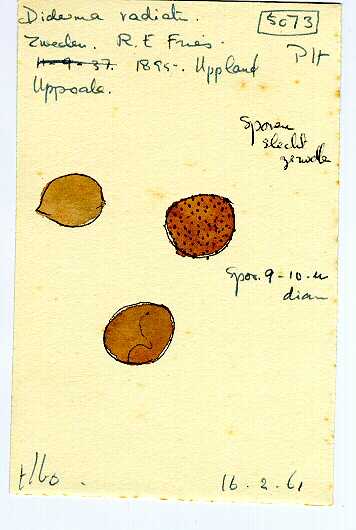 Diderma radiat.
5073
Zweden. R. E Fries.
Pl+
11-9-37. 1895-. Uppland
Uppsala.
Sporen
slecht
Spor. 9-10 µ
diam
16.2.61